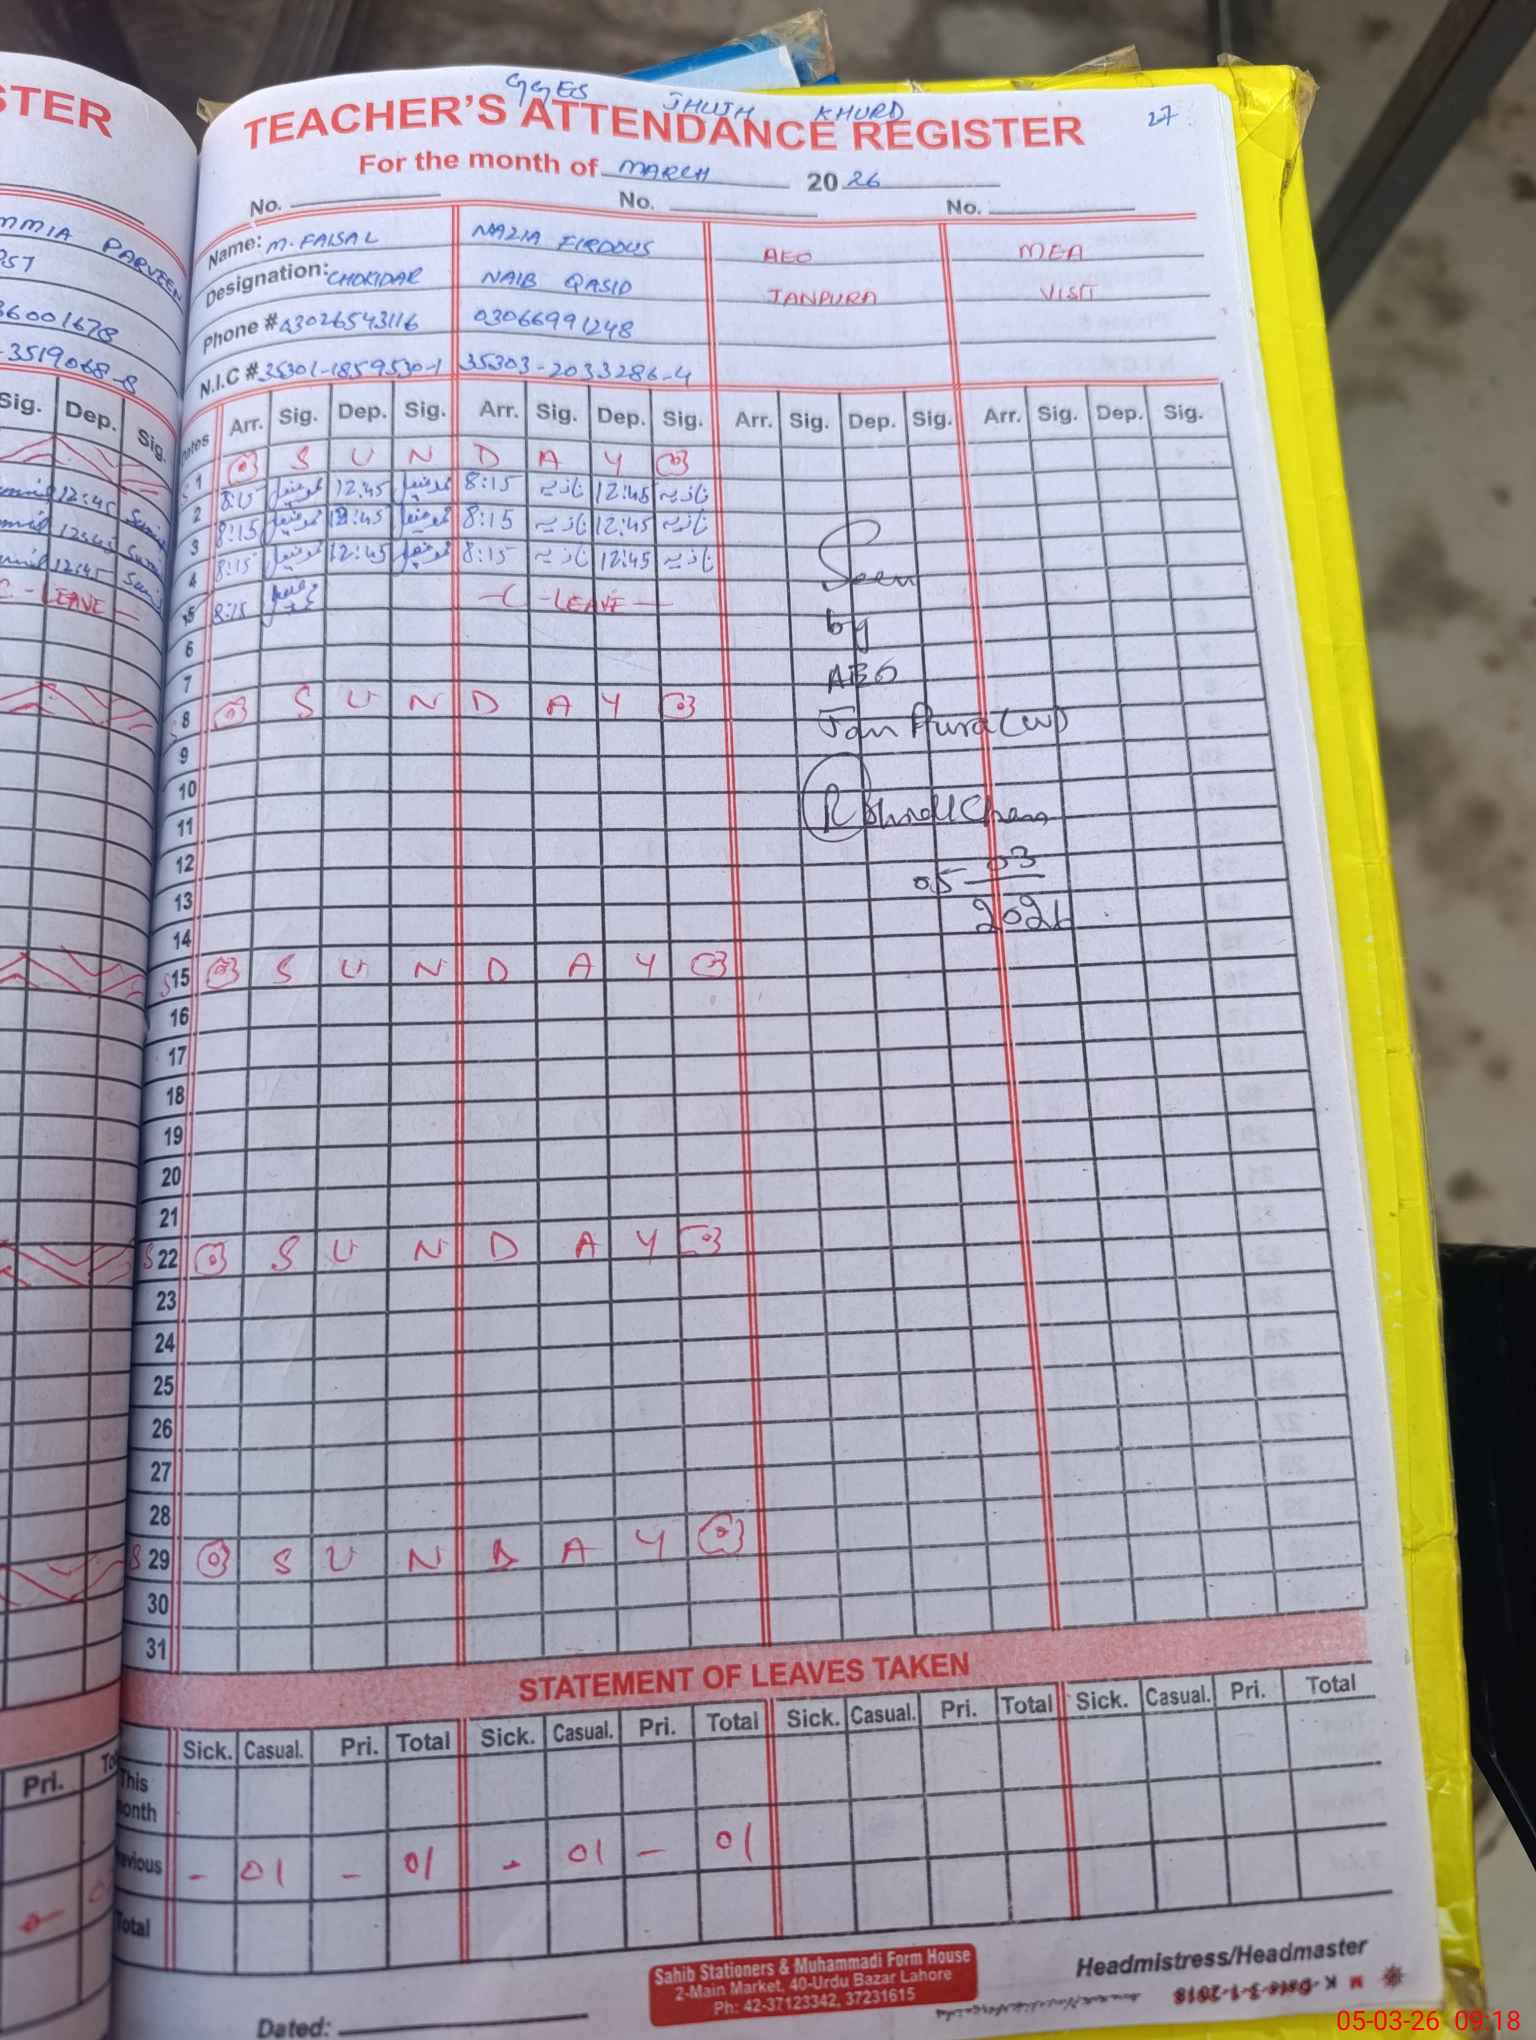 STER
MMIA PARVEEN
PST
36001678
-3519068-8
Sig. Dep. Sig.
12:45
12:45
12:45
C - LEAVE -
Pri.
GGES JHUJH KHURD
27
TEACHER'S ATTENDANCE REGISTER
For the month of MARCH 20 26
No. No. No.
Name: M. FAISAL NAZIA FIRDOUS AEO MEA
Designation: CHOKIDAR NAIB QASID JANPURA VISIT
Phone # 03026543116 03066991248
N.I.C # 35301-1859530-1 35303-2033286-4
Dates Arr. Sig. Dep. Sig. Arr. Sig. Dep. Sig. Arr. Sig. Dep. Sig. Arr. Sig. Dep. Sig.
1 S U N D A Y
2 8:15 12:45 8:15 نازیہ 12:45 نازیہ
3 8:15 12:45 8:15 نازیہ 12:45 نازیہ
4 8:15 12:45 8:15 نازیہ 12:45 نازیہ
5 8:15 - C - LEAVE -
6
7
S 8 S U N D A Y
9
10
11
12
13
14
S 15 S U N D A Y
16
17
18
19
20
21
S 22 S U N D A Y
23
24
25
26
27
28
S 29 S U N D A Y
30
31
Seen
by
AEO
Jan Pura (W)
05-03
2026
STATEMENT OF LEAVES TAKEN
Sick. Casual. Pri. Total Sick. Casual. Pri. Total Sick. Casual. Pri. Total Sick. Casual. Pri. Total
This
Month
Previous - 01 - 01 - 01 - 01
Total
Sahib Stationers & Muhammadi Form House
2-Main Market, 40-Urdu Bazar Lahore
Ph: 42-37123342, 37231615
Headmistress/Headmaster
Dated:
05-03-26 09:18